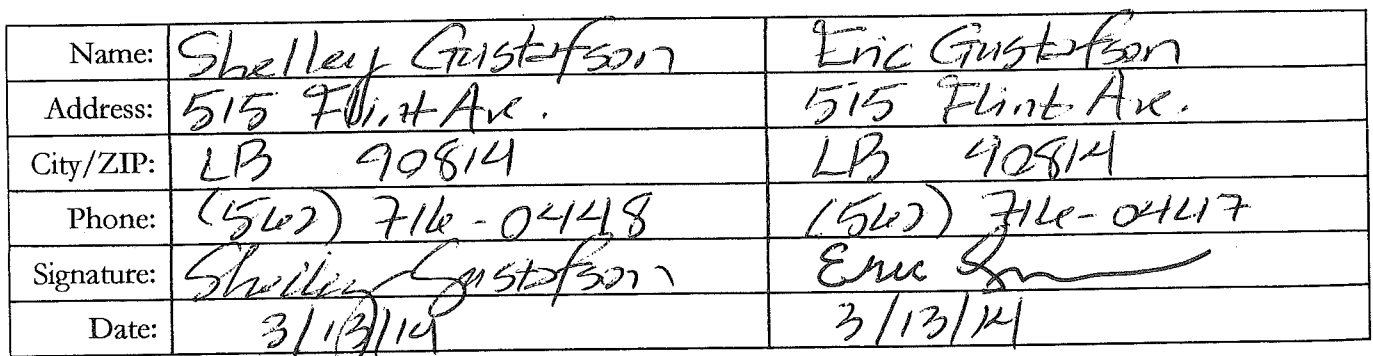 Name: Shelley Gustafson Eric Gustafson
Address: 515 Flint Ave. 515 Flint Ave.
City/ZIP: LB 90814 LB 90814
Phone: (562) 716-0448 (562) 716-0447
Signature: Shelley Gustafson Eric
Date: 3/13/14 3/13/14